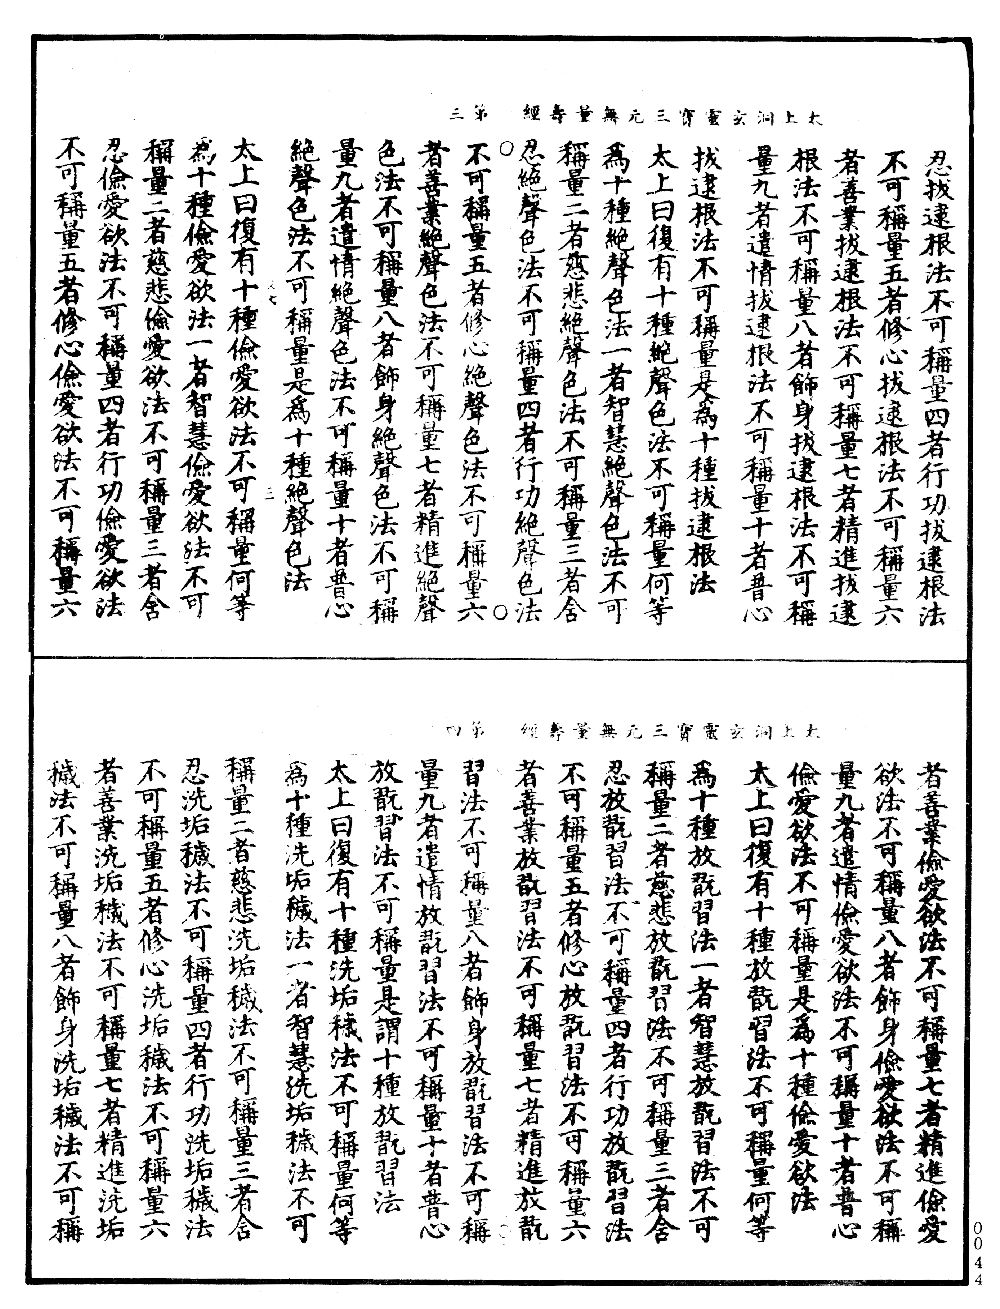 太上洞玄靈寶三元無量壽經　第三
忍拔逮根法不可稱量四者行功拔逮根法
不可稱量五者修心拔逮根法不可稱量六
者善業拔逮根法不可稱量七者精進拔逮
根法不可稱量八者飾身拔逮根法不可稱
量九者遣情拔逮根法不可稱量十者普心
拔逮根法不可稱量是爲十種拔逮根法
太上曰復有十種絶聲色法不可稱量何等
爲十種絶聲色法一者智慧絶聲色法不可
稱量二者慈悲絶聲色法不可稱量三者舍
忍絶聲色法不可稱量四者行功絶聲色法
不可稱量五者修心絶聲色法不可稱量六
者善業絶聲色法不可稱量七者精進絶聲
色法不可稱量八者飾身絶聲色法不可稱
量九者遣情絶聲色法不可稱量十者普心
絶聲色法不可稱量是爲十種絶聲色法
三
太上曰復有十種儉愛欲法不可稱量何等
爲十種儉愛欲法一者智慧儉愛欲法不可
稱量二者慈悲儉愛欲法不可稱量三者舍
忍儉愛欲法不可稱量四者行功儉愛欲法
不可稱量五者修心儉愛欲法不可稱量六
太上洞玄靈寶三元無量壽經　第四
者善業儉愛欲法不可稱量七者精進儉愛
欲法不可稱量八者飾身儉愛欲法不可稱
量九者遣情儉愛欲法不可稱量十者普心
儉愛欲法不可稱量是爲十種儉愛欲法
太上曰復有十種放翫習法不可稱量何等
爲十種放翫習法一者智慧放翫習法不可
稱量二者慈悲放翫習法不可稱量三者舍
忍放翫習法不可稱量四者行功放翫習法
不可稱量五者修心放翫習法不可稱量六
者善業放翫習法不可稱量七者精進放翫
習法不可稱量八者飾身放翫習法不可稱
量九者遣情放翫習法不可稱量十者普心
放翫習法不可稱量是謂十種放翫習法
太上曰復有十種洗垢穢法不可稱量何等
爲十種洗垢穢法一者智慧洗垢穢法不可
稱量二者慈悲洗垢穢法不可稱量三者舍
忍洗垢穢法不可稱量四者行功洗垢穢法
不可稱量五者修心洗垢穢法不可稱量六
者善業洗垢穢法不可稱量七者精進洗垢
穢法不可稱量八者飾身洗垢穢法不可稱
0044